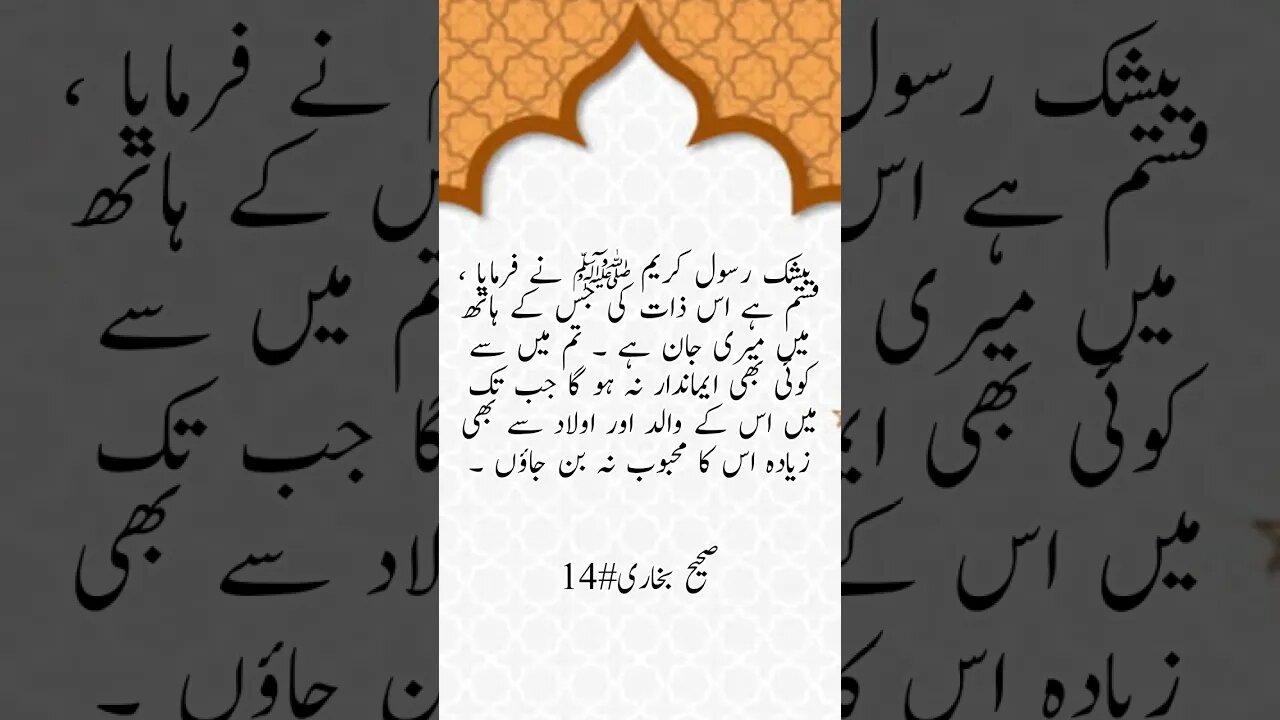 بیشک رسول کریم ﷺ نے فرمایا ،
قسم ہے اس ذات کی جس کے ہاتھ
میں میری جان ہے ۔ تم میں سے
کوئی بھی ایماندار نہ ہو گا جب تک
میں اس کے والد اور اولاد سے بھی
زیادہ اس کا محبوب نہ بن جاؤں ۔
صحیح بخاری#14